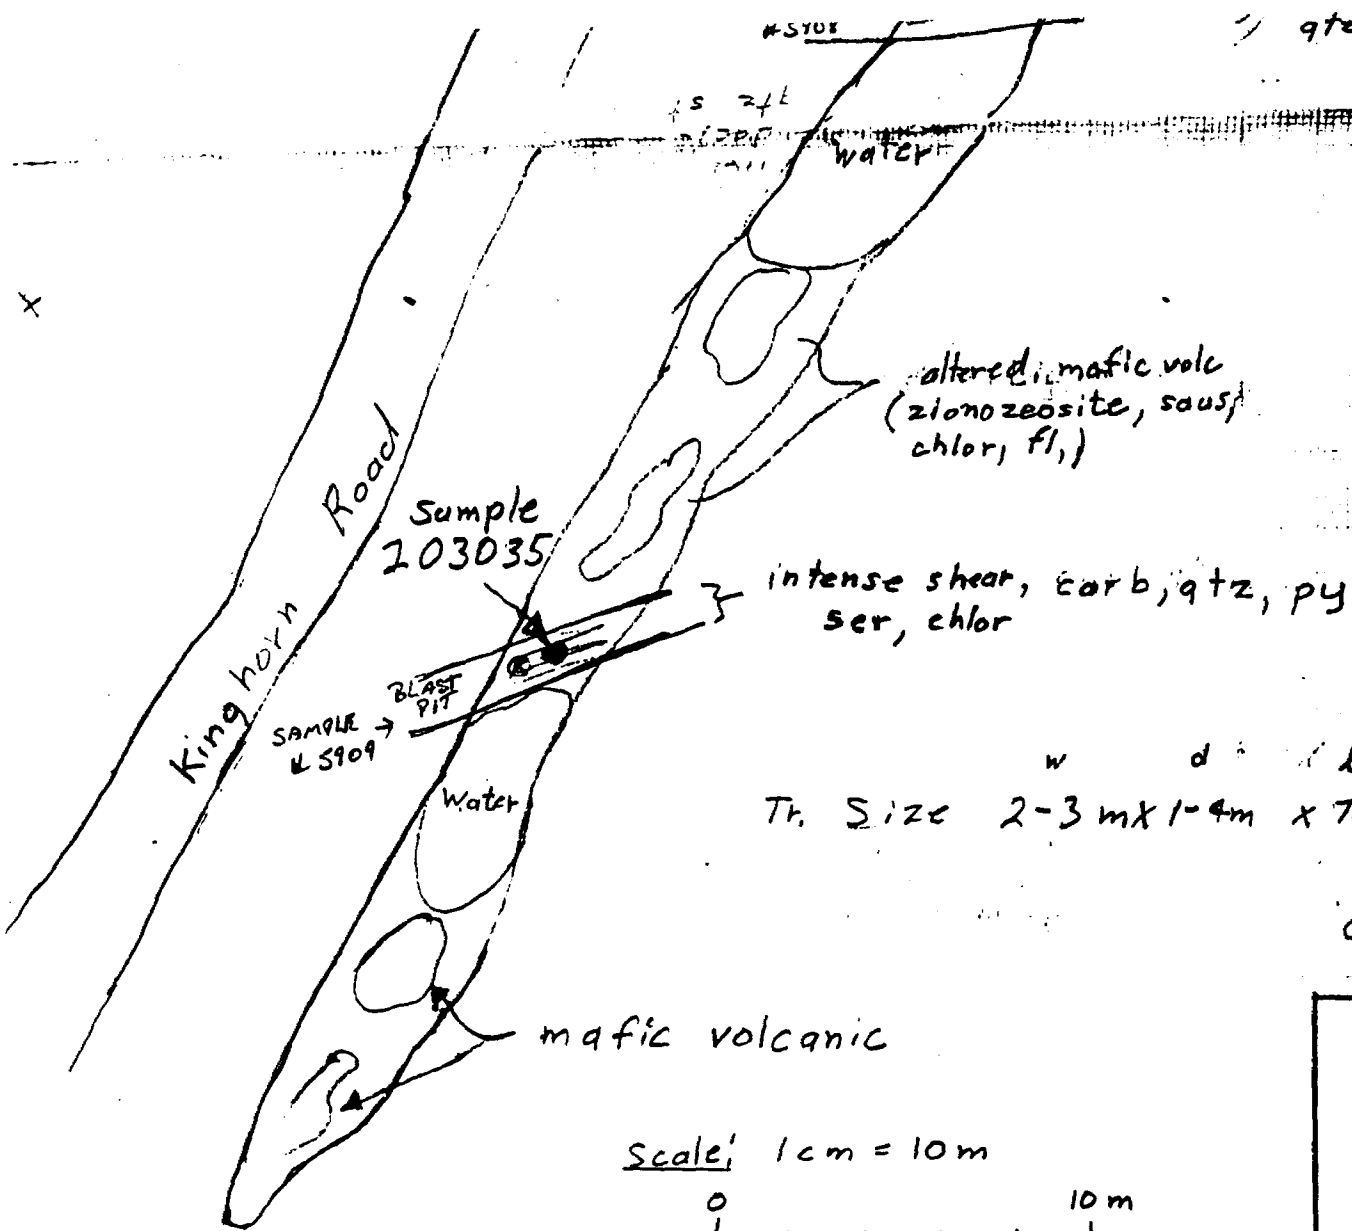 #5908
qtz
water
altered, mafic volc
(zionozeosite, saus,
chlor, fl,)
Kinghorn Road
Sample
203035
intense shear, carb, qtz, py
ser, chlor
BLAST
PIT
SAMPLE
5909
w d
Tr. Size 2-3 m x 1-4m x 7
Water
mafic volcanic
Scale: 1cm = 10m
0 10 m